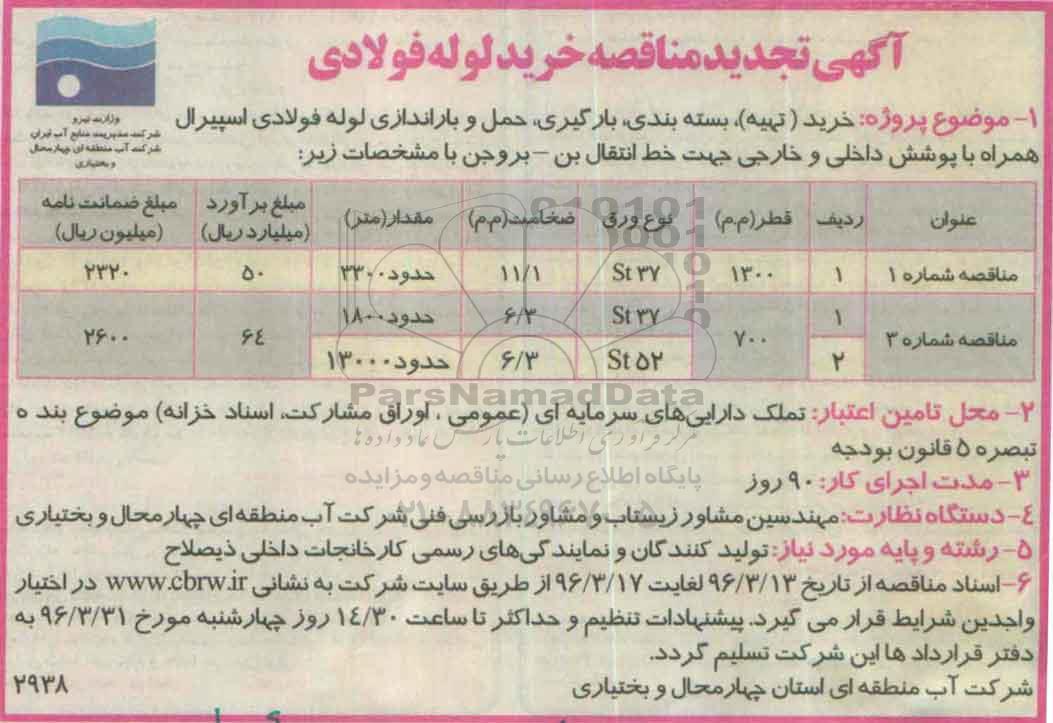 آگهی تجدید مناقصه خرید لوله فولادی
وزارت نیرو
شرکت مدیریت منابع آب ایران
شرکت آب منطقه ای چهارمحال
و بختیاری
۱- موضوع پروژه: خرید ( تهیه)، بسته بندی، بارگیری، حمل و باراندازی لوله فولادی اسپیرال
همراه با پوشش داخلی و خارجی جهت خط انتقال بن – بروجن با مشخصات زیر:
عنوان ردیف قطر(م.م) نوع ورق ضخامت(م.م) مقدار(متر) مبلغ برآورد (میلیارد ریال) مبلغ ضمانت نامه (میلیون ریال)
مناقصه شماره ۱ ۱ ۱۳۰۰ St ۳۷ ۱۱/۱ حدود ۳۳۰۰ ۵۰ ۲۳۲۰
مناقصه شماره ۳ ۱ ۷۰۰ St ۳۷ ۶/۳ حدود ۱۸۰۰ ۶۴ ۲۶۰۰
۲ St ۵۲ ۶/۳ حدود ۱۳۰۰۰
ParsNamadData
مرکز فرآوری اطلاعات پارس نماد داده ها
پایگاه اطلاع رسانی مناقصه و مزایده
۰۲۱-۸۸۳۴۹۶۷۰-۵
۲- محل تامین اعتبار: تملک دارایی‌های سرمایه ای (عمومی ، اوراق مشارکت، اسناد خزانه) موضوع بند ه
تبصره ۵ قانون بودجه
۳- مدت اجرای کار: ۹۰ روز
٤- دستگاه نظارت: مهندسین مشاور زیستاب و مشاور بازرسی فنی شرکت آب منطقه ای چهارمحال و بختیاری
۵- رشته و پایه مورد نیاز: تولید کنندگان و نمایندگی‌های رسمی کارخانجات داخلی ذیصلاح
۶- اسناد مناقصه از تاریخ ۹۶/۳/۱۳ لغایت ۹۶/۳/۱۷ از طریق سایت شرکت به نشانی www.cbrw.ir در اختیار
واجدین شرایط قرار می گیرد. پیشنهادات تنظیم و حداکثر تا ساعت ۱٤/۳۰ روز چهارشنبه مورخ ۹۶/۳/۳۱ به
دفتر قرارداد ها این شرکت تسلیم گردد.
شرکت آب منطقه ای استان چهارمحال و بختیاری
۲۹۳۸